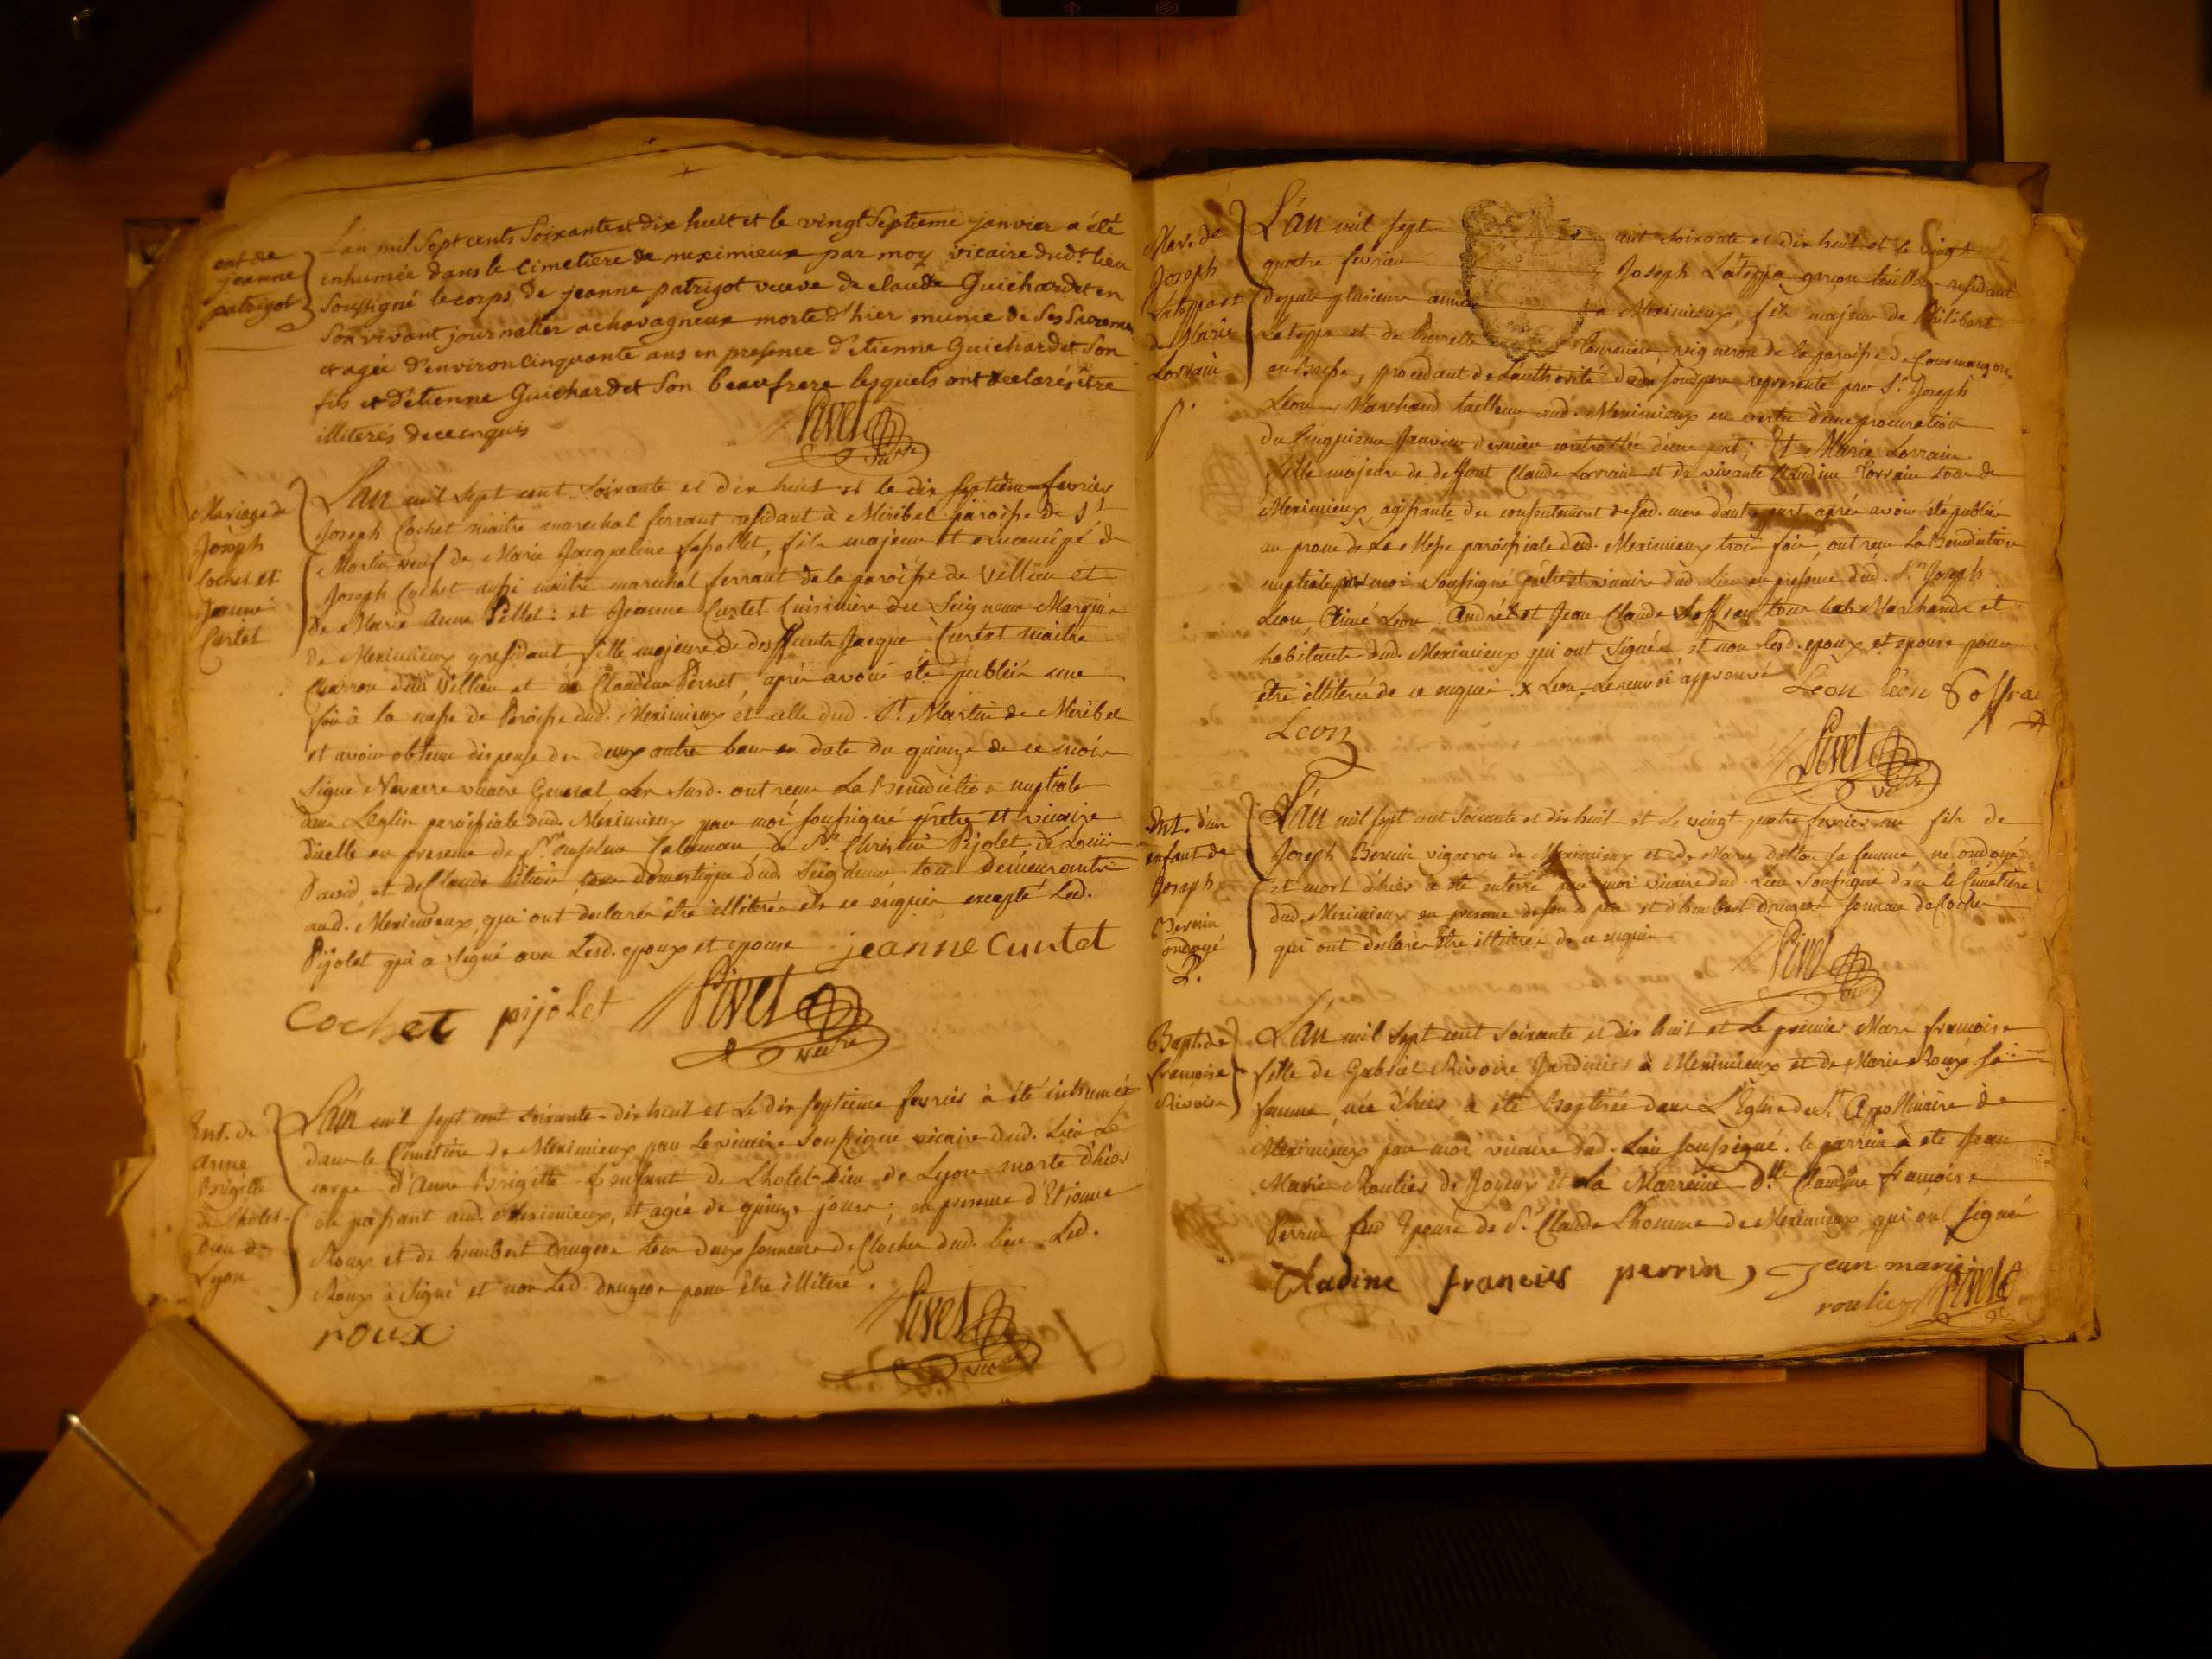 ent de
jeanne
patrigot
L'an mil Sept cents Soixante et dix huit et le vingt Septieme janvier a été
inhumée dans le Cimetiere de meximieux par moy vicaire dudt lieu
Soussigné le corps de jeanne patrigot veuve de claude Guichardet en
Son vivant journalier a chavagneux morte d'hier munie de Ses Sacrems
et agée d'environ cinquante ans en presence d'etienne Guichardet Son
fils et d'etienne Guichardet Son beaufrere lesquels ont declarés être
illiterés de ce enquis
Pivet
vicre
Mariage de
Joseph
Cochet et
Jeanne
Curtet
L'an mil sept cent soixante et dix huit et le dix septieme fevrier
Joseph Cochet maitre marechal ferrant residant à Miribel paroisse de St
Martin veuf de Marie Jacqueline , fils majeur et emancipé de
Joseph Cochet aussi maitre marechal ferrant de la paroisse de Villieu et
de Marie Anne Pillet: et Jeanne Curtet Cuisiniere du Seigneur Marquis
de Meximieux y residant fille majeure de deffunts Jacque Curtet maitre
Charron dud. Villieu et de Claudine Pernet, après avoir été publiés une
fois à la messe de Paroisse dud. Meximieux et celle dud. St Martin de Miribel
et avoir obtenu dispense des deux autre bans en date du quinze de ce mois
signé Navarre vicaire General Les susd. ont reçu La Benediction nuptiale
dans L'eglise paroissiale dud. Meximieux par moi soussigné prêtre et vicaire
d'icelle en presence de Sr anselme de Sr Pijolet de Louis
David et de Claude tous domestiques dud. Seigneur tous demeurants
aud. Meximieux, qui ont declarés être illiterés de ce enquis excepté Led.
Pijolet qui a signé avec Lesd. epoux et epouse jeanne Curtet
Cochet pijolet Pivet
vicre
Ent. de
Anne
Brigitte
de Lhotel-
Dieu de
Lyon
L'an mil sept cent soixante-dix huit et Le dix septieme fevrier à été inhumée
dans le Cimetiere de Meximieux par Le vicaire Soussigné vicaire dud. Lieu Le
corps d'Anne Brigitte Enfant de L'hotel-Dieu de Lyon morte d'hier
en passant aud. Meximieux, et agée de quinze jours; en presence d'Etienne
Roux et de humbert Drugeon tous deux sonneurs de Clocher dud. Lieu Led.
Roux à signé et non Led. drugeon pour être illiteré.
roux
Pivet
vicre
Mar. de
Joseph
Lateppe et
de Marie
Lorrain
L'an mil sept cent soixante et dix huit et le vingt
quatre fevrier Joseph Lateppe garçon tailleur residant
depuis plusieurs années à Meximieux, fils majeur de Philibert
Lateppe et de Pierrette Tournier, vigneron de la paroisse de Courmangoux
en Bresse, procedant de L'authorité de son pere representé par Sr Joseph
Leon Marchand tailleur aud. Meximieux en vertu d'une procuration
du cinquieme Janvier dernier controllée d'une part; Et Marie Lorrain
fille majeure de deffunt Claude Lorrain et de vivante Claudine tous de
Meximieux agissante du consentement de sad. mere d'autre part après avoir été publiés
au prone de La Messe paroissiale dud. Meximieux trois fois, ont reçu La Benediction
nuptiale par moi soussigné prêtre et vicaire dud. Lieu en presence dud. Sr Joseph
Leon, Aimé Leon, et Jean Claude Soffray tous Marchands et
habitants dud. Meximieux qui ont signés et non lesd. epoux et epouse pour
être illiterés de ce enquis. x Leon. Le renvoi approuvé Leon leon Soffra
Leon
Pivet
vicre
Ent. d'un
enfant de
Joseph
Bernin
ondoyé
L'an mil sept cent soixante et dix huit et Le vingt quatre fevrier un fils de
Joseph Bernin vigneron de Meximieux et de Marie sa femme né ondoyé
et mort d'hier à été enterré par moi vicaire dud. Lieu soussigné dans le Cimetiere
dud. Meximieux en presence de son pere et d'humbert Drugeon sonneur de Cloche
qui ont déclarés être illiterés de ce enquis
Pivet
vicre
Bapt. de
françoise
Rivoire
L'an mil sept cent soixante et dix huit et Le premier Mars françoise
fille de Gabriel Rivoire Jardinier à Meximieux et de Marie Roux sa
femme née d'hier à été Baptisée dans L'Eglise de St Appollinaire de
Meximieux par moi vicaire dud. Lieu soussigné. le parrein à été Jean
Marie Roulier de Joyeux et La Marreine Dlle Claudine françoise
Perrin Epouse de Sr Claude Lhomme de Meximieux qui ont signé
Cladine francies perrin, Jean marie
roulier Pivet